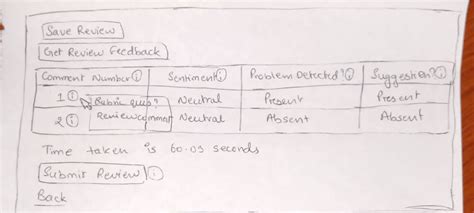 Save Review
Get Review Feedback
Comment Number ⓘ Sentiment ⓘ Problem Detected? ⓘ Suggestion? ⓘ
1 ⓘ Neutral Present Present
Rubric ques?
Review comment
2 ⓘ Neutral Absent Absent
Time taken is 60.05 seconds
Submit Review ⓘ
Back